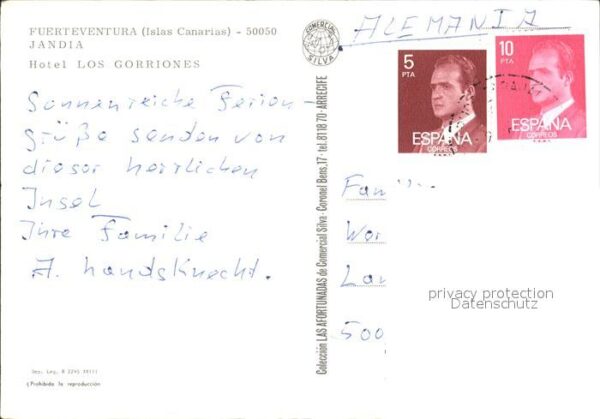 FUERTEVENTURA (Islas Canarias) - 50050
JANDIA
Hotel LOS GORRIONES
Sonnenreiche Ferien-
grüße senden von
dieser herrlichen
Insel
Ihre Familie
A. Landsknecht.
(Prohibida la reproducción
COMERCIAL
SILVA
Colección LAS AFORTUNADAS de Comercial Silva - Coronel Bens, 17 - tel. 81 18 70 - ARRECIFE
ALEMANIA
5
PTA
ESPAÑA
CORREOS
10
PTA
ESPAÑA
CORREOS
Fam
Wor
Lan
500
privacy protection
Datenschutz